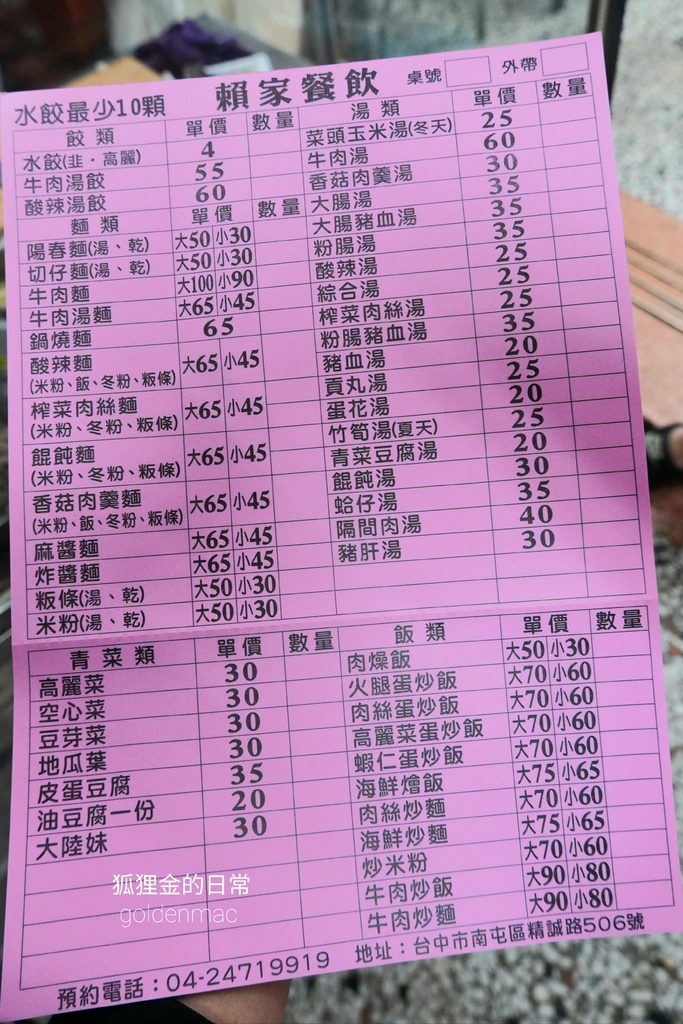 賴家餐飲
桌號 外帶
水餃最少10顆
餃類 單價 數量
水餃(韭・高麗) 4
牛肉湯餃 55
酸辣湯餃 60
麵類 單價 數量
陽春麵(湯、乾) 大50 小30
切仔麵(湯、乾) 大50 小30
牛肉麵 大100 小90
牛肉湯麵 大65 小45
鍋燒麵 65
酸辣麵 大65 小45
(米粉、飯、冬粉、粄條)
榨菜肉絲麵 大65 小45
(米粉、冬粉、粄條)
餛飩麵 大65 小45
(米粉、冬粉、粄條)
香菇肉羹麵 大65 小45
(米粉、飯、冬粉、粄條)
麻醬麵 大65 小45
炸醬麵 大65 小45
粄條(湯、乾) 大50 小30
米粉(湯、乾) 大50 小30
湯類 單價 數量
菜頭玉米湯(冬天) 25
牛肉湯 60
香菇肉羹湯 30
大腸湯 35
大腸豬血湯 35
粉腸湯 35
酸辣湯 25
綜合湯 25
榨菜肉絲湯 25
粉腸豬血湯 35
豬血湯 20
貢丸湯 25
蛋花湯 20
竹筍湯(夏天) 25
青菜豆腐湯 20
餛飩湯 30
蛤仔湯 35
隔間肉湯 40
豬肝湯 30
青菜類 單價 數量
高麗菜 30
空心菜 30
豆芽菜 30
地瓜葉 30
皮蛋豆腐 35
油豆腐一份 20
大陸妹 30
飯類 單價 數量
肉燥飯 大50 小30
火腿蛋炒飯 大70 小60
肉絲蛋炒飯 大70 小60
高麗菜蛋炒飯 大70 小60
蝦仁蛋炒飯 大70 小60
海鮮燴飯 大75 小65
肉絲炒麵 大70 小60
海鮮炒麵 大75 小65
炒米粉 大70 小60
牛肉炒飯 大90 小80
牛肉炒麵 大90 小80
狐狸金的日常
goldenmac
預約電話：04-24719919 地址：台中市南屯區精誠路506號